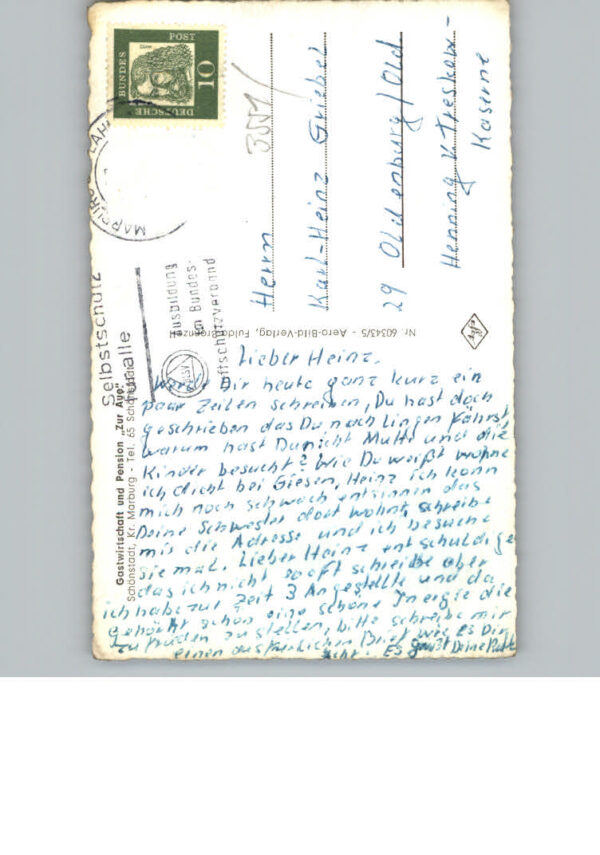 DEUTSCHE
BUNDES
POST
10
MARBURG LAHN
Selbstschutz
für alle
Ausbildung
im Bundes-
luftschutzverband
Gastwirtschaft und Pension „Zur Aue“
Schönstadt, Kr. Marburg - Tel. 65 Schönstadt
Nr. 60343/5 - Aero-Bild-Verlag, Fulda
Herrn
Karl-Heinz Griebel
29 Oldenburg/Old
Henning v. Treskow-
Kaserne
Lieber Heinz.
Werde Dir heute ganz kurz ein
paar Zeilen schreiben, Du hast doch
geschrieben das Du nach Lingen fährst
warum hast Du nicht Mutti und die
Kinder besucht? Wie Du weißt wohne
ich dicht bei Giesen, Heinz ich kann
mich noch schwach entsinnen das
Deine Schwester dort wohnt, schreibe
mir die Adresse und ich besuche
sie mal. Lieber Heinz entschuldige
das ich nicht so oft schreibe aber
ich habe zur Zeit 3 Angestellte und da
gehört schon eine schöne Energie die
zufrieden zu stellen, bitte schreibe mir
einen ausführlichen Brief wie es Dir
geht. Es grüßt Deine